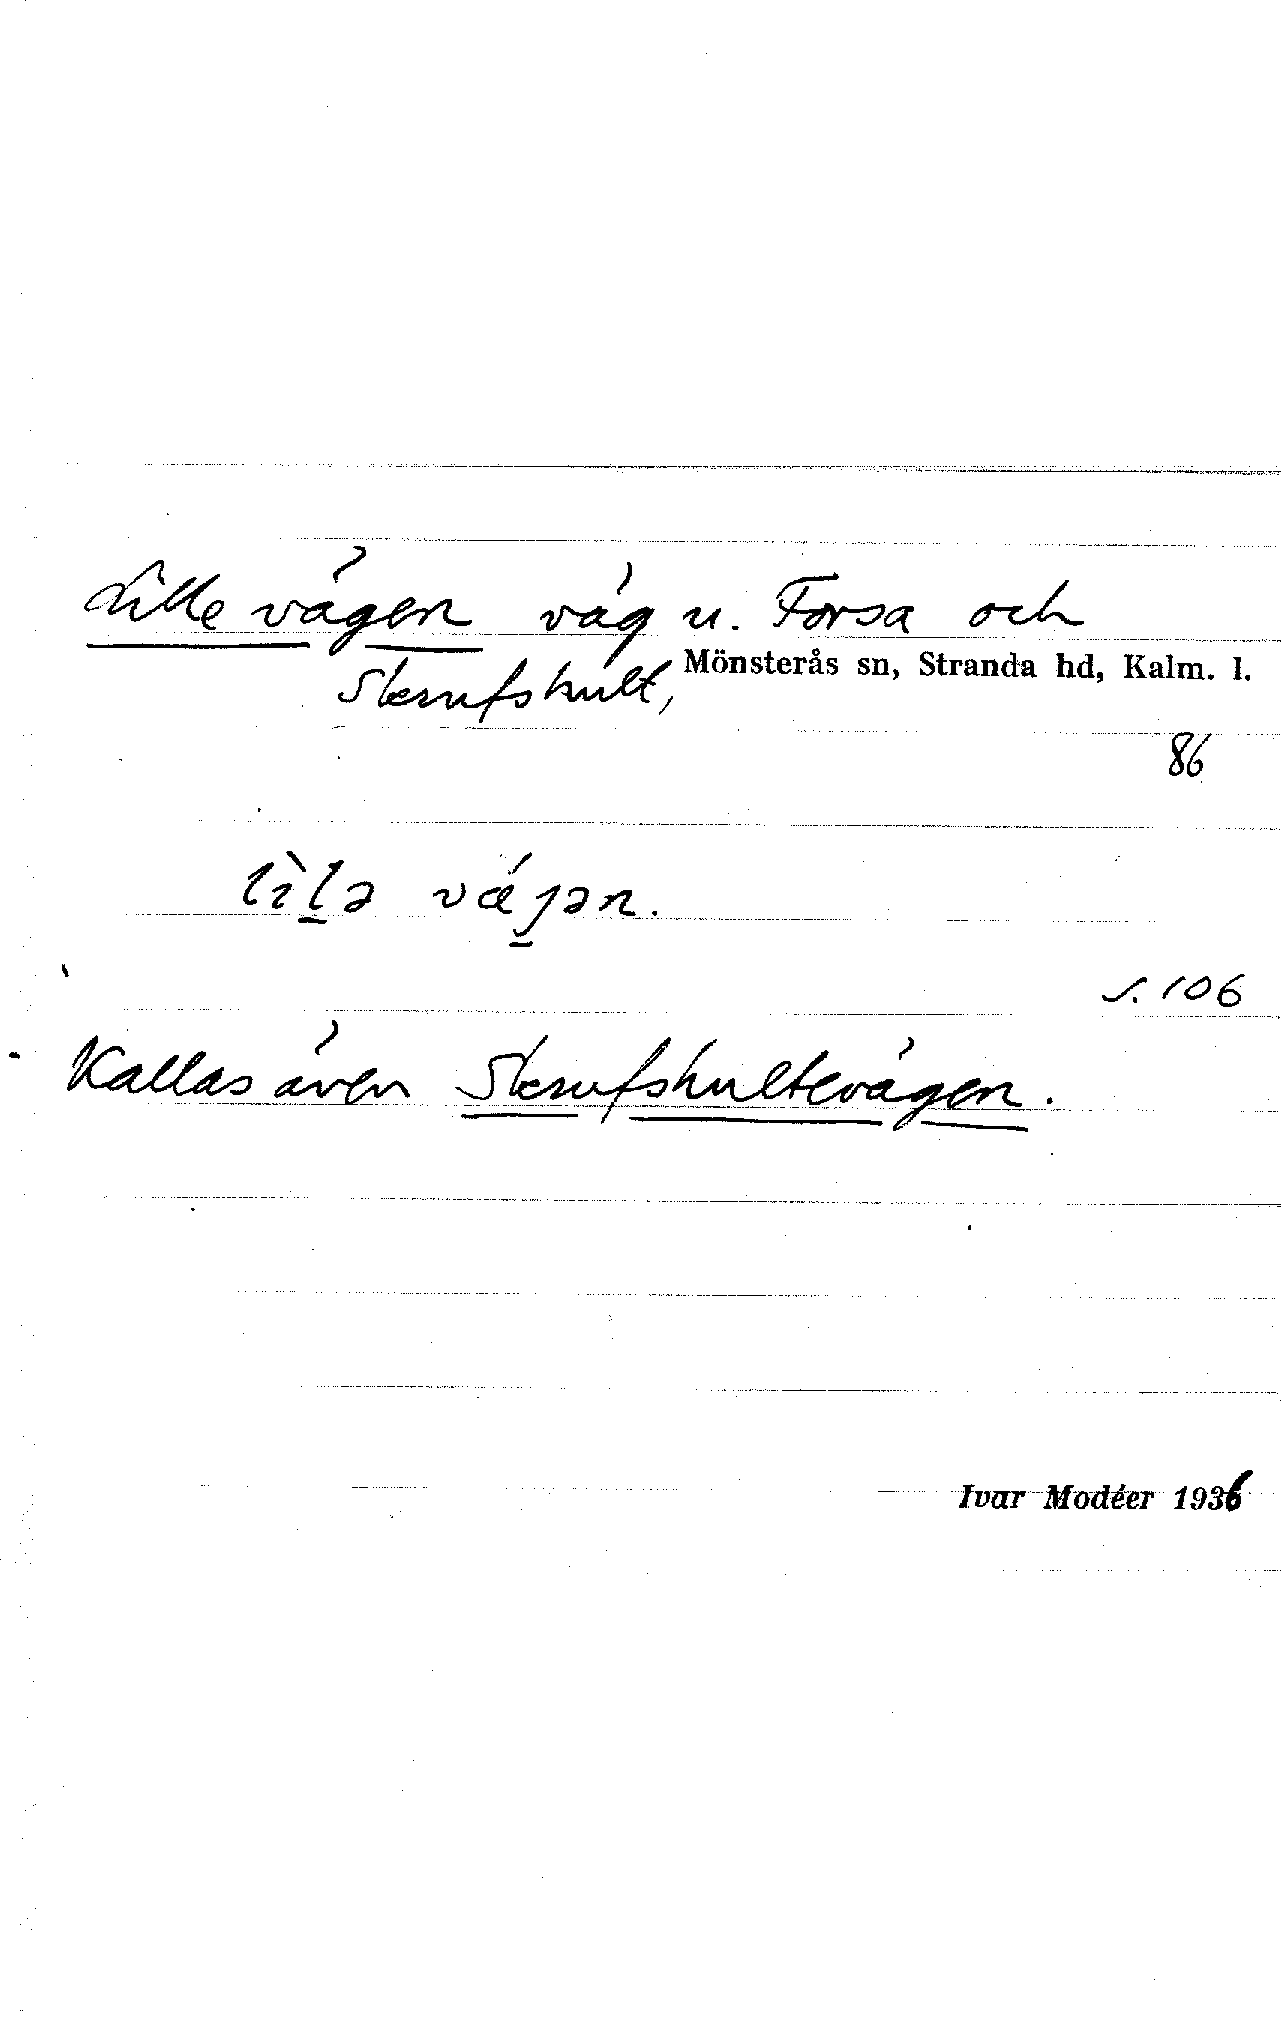 Lille vägen väg u. Forsa och
Skrufshult, Mönsterås sn, Stranda hd, Kalm. l.
86
lìl̲ə væ̀ȷ̲ən.
s. 106
Kallas även Skrufshultevägen.
Ivar Modéer 1936